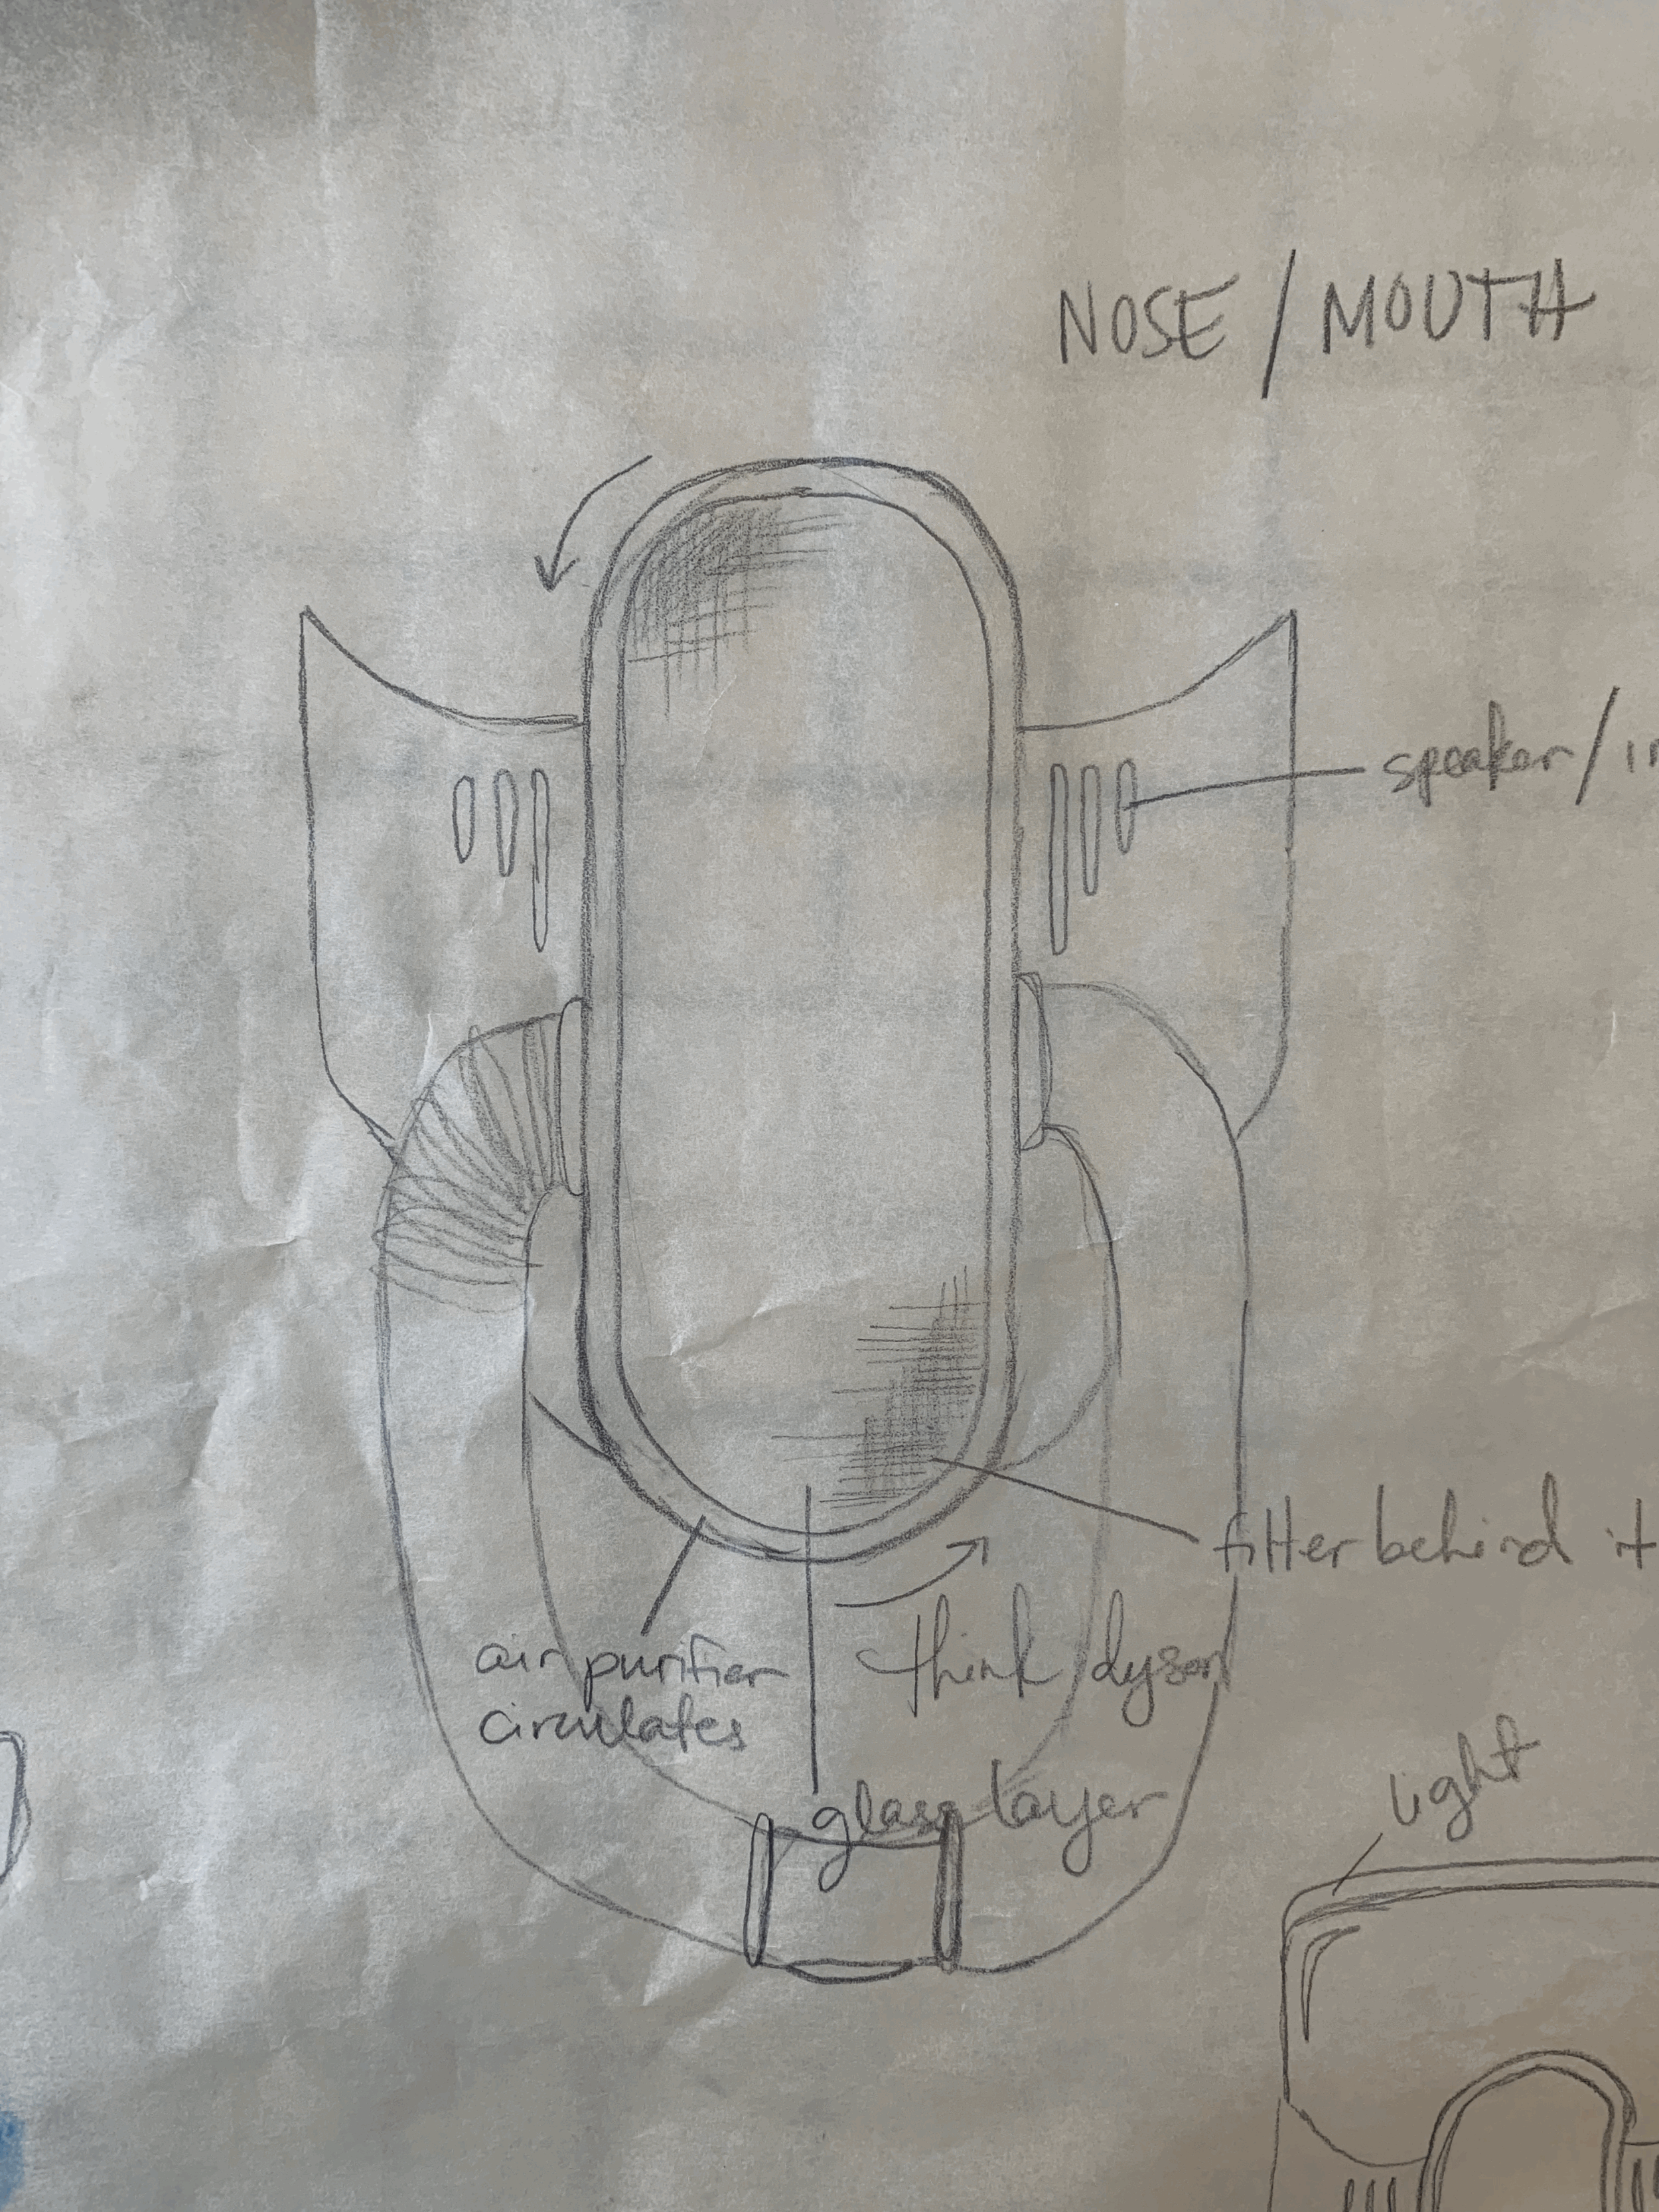 NOSE / MOUTH
speaker /
filter behind it
air purifier
circulates
think dyson
glass layer
light